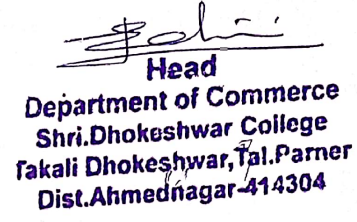 Head
Department of Commerce
Shri.Dhokeshwar College
Takali Dhokeshwar,Tal.Parner
Dist.Ahmednagar-414304